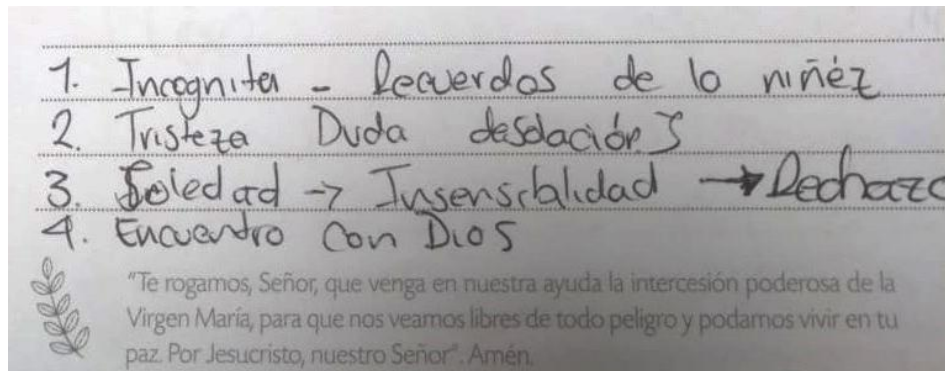 1. Incognita - Recuerdos de lo niñéz
2. Tristeza Duda desolación
3. Soledad → Insensibilidad → Rechazo
4. Encuentro con Dios
"Te rogamos, Señor, que venga en nuestra ayuda la intercesión poderosa de la
Virgen María, para que nos veamos libres de todo peligro y podamos vivir en tu
paz. Por Jesucristo, nuestro Señor". Amén.